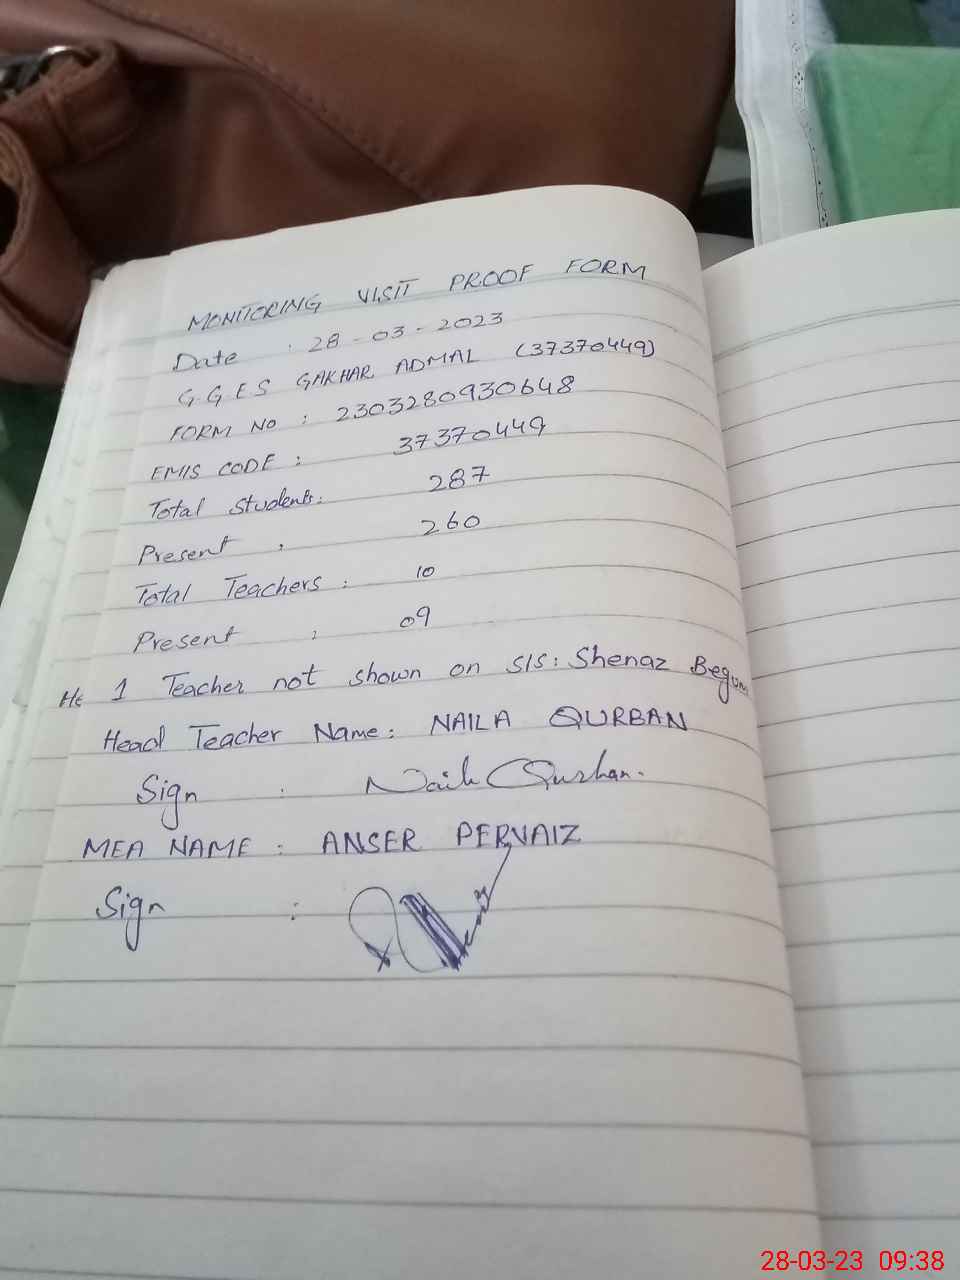 MONITORING VISIT PROOF FORM
Date : 28-03-2023
G.G.E.S GAKHAR ADMAL (37370449)
FORM NO : 2303280930648
EMIS CODE : 37370449
Total Students: 287
Present : 260
Total Teachers : 10
Present : 09
1 Teacher not shown on SIS: Shenaz Begum
Head Teacher Name: NAILA QURBAN
Sign : Naila Qurban.
MEA NAME : ANSER PERVAIZ
Sign :
28-03-23 09:38